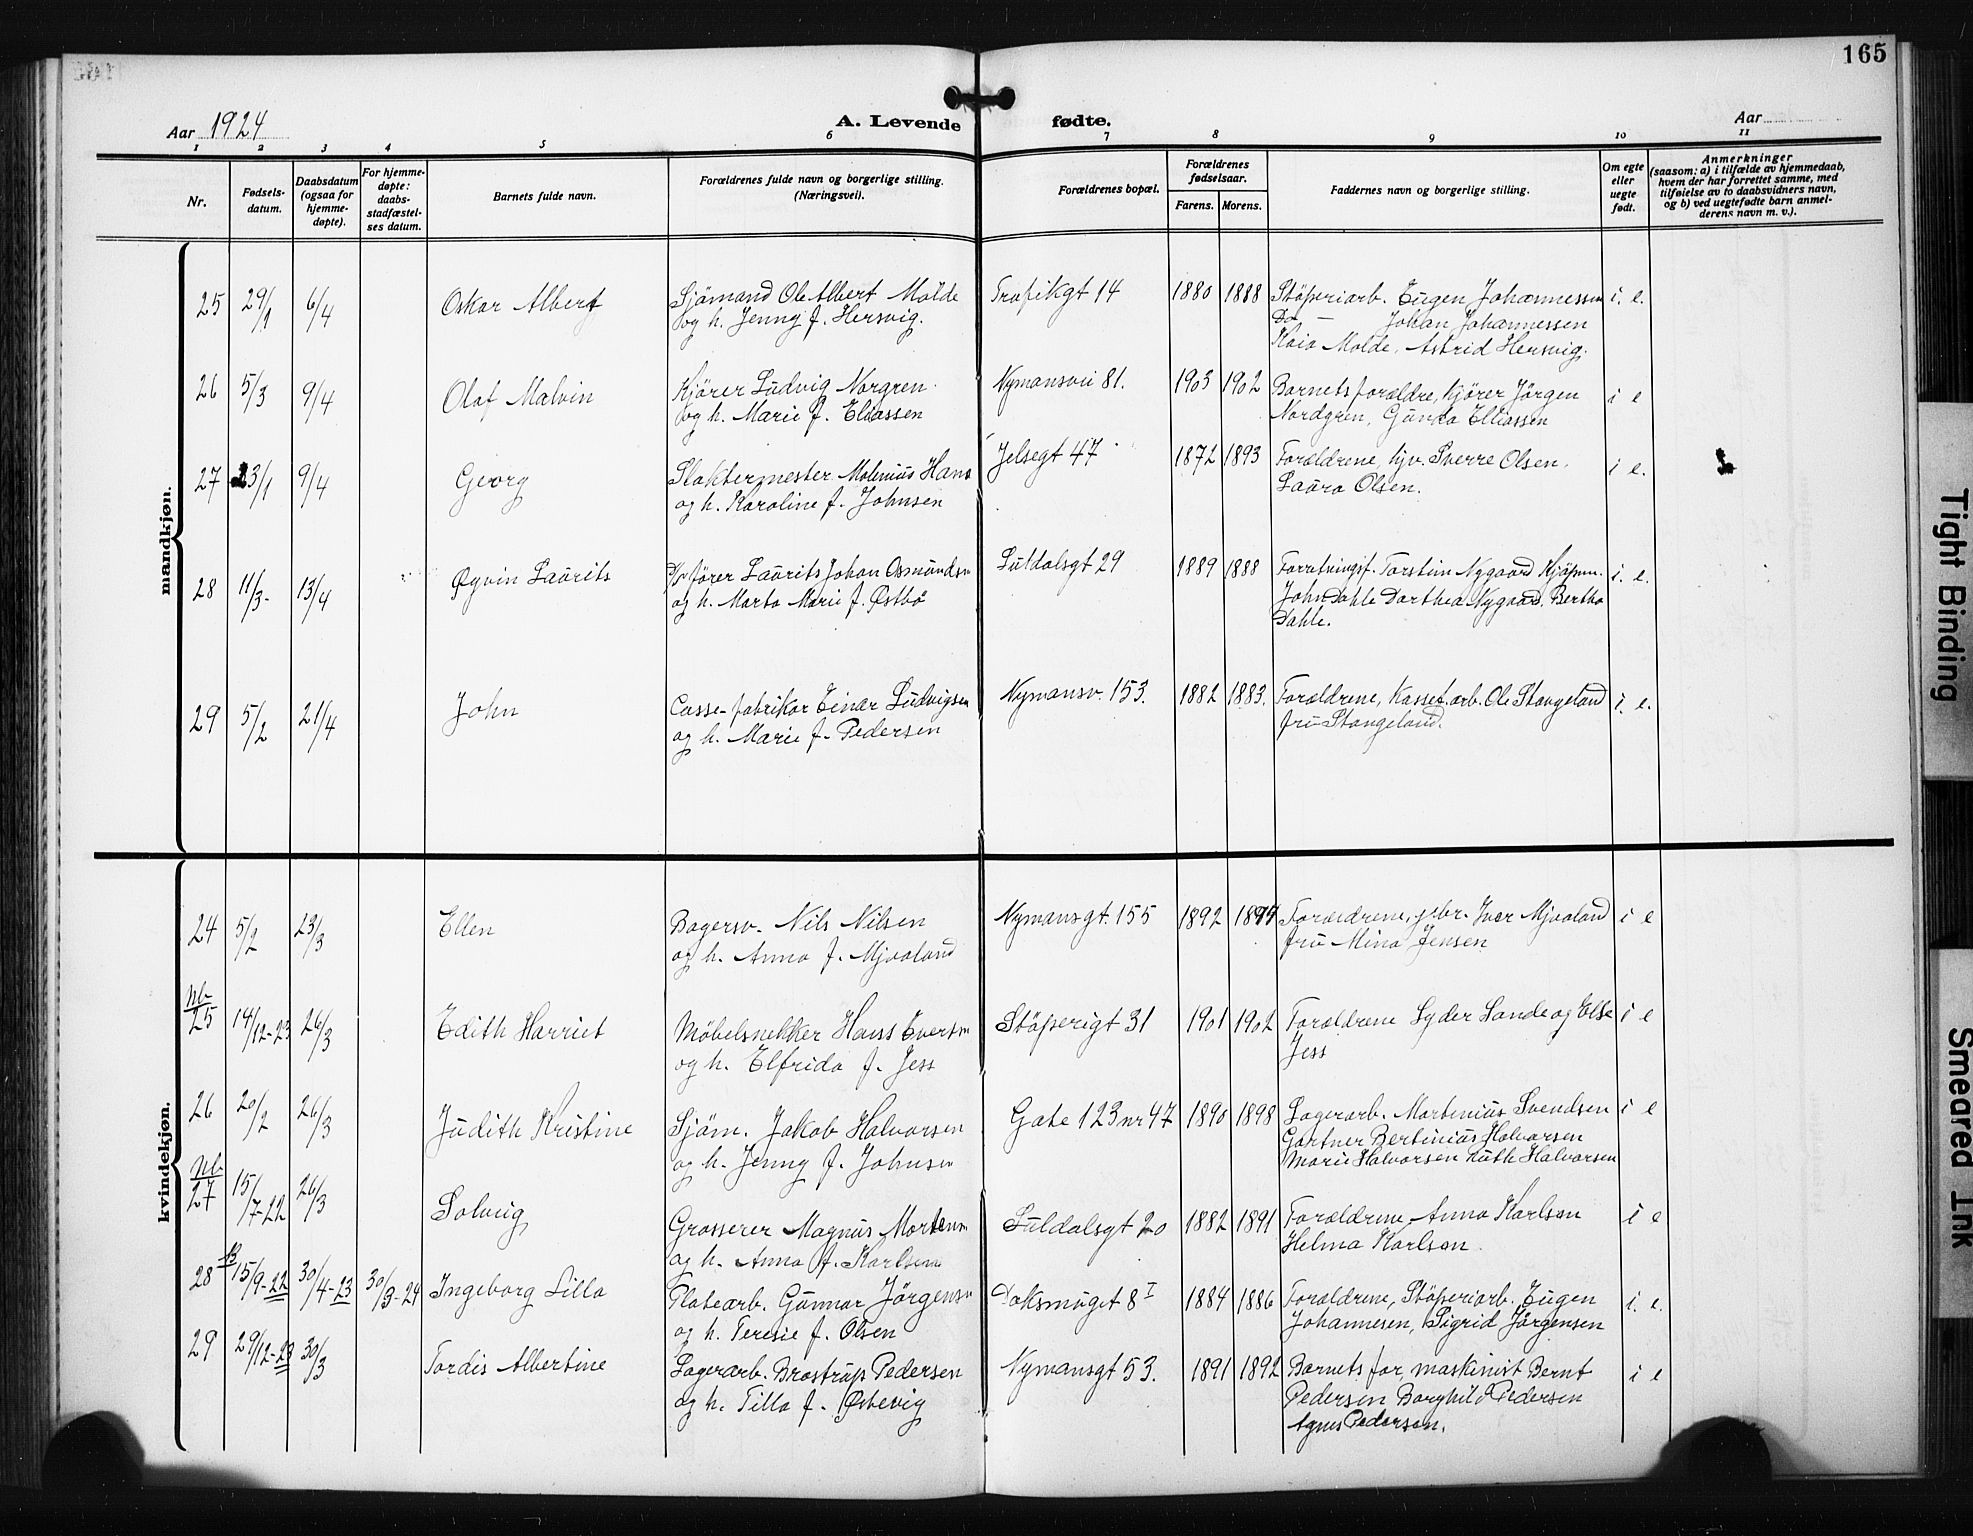 165
Aar 1924
A. Levende fødte.
Aar
1 2 3 4 5 6 7 8 9 10 11
Nr.
Fødsels-
datum.
Daabsdatum
(ogsaa for
hjemme-
døpte).
For hjemme-
døpte:
daabs-
stadfæstel-
ses datum.
Barnets fulde navn.
Forældrenes fulde navn og borgerlige stilling.
(Næringsvei).
Forældrenes bopæl.
Forældrenes
fødselsaar.
Farens. Morens.
Faddernes navn og borgerlige stilling.
Om egte
eller
uegte
født.
Anmerkninger
(saasom: a) i tilfælde av hjemmedaab,
hvem der har forrettet samme, med
tilføielse av to daabsvidners navn,
og b) ved uegtefødte barn anmel-
derens navn m. v.).
mandkjøn.
25 29/1 6/4 Oskar Albert Sjömand Ole Albert Molde Trafikgt 14 1880 1888 Støperiarb. Eugen Johannessen i. e.
og h. Jenny f. Hersvig. Do — Johan Johannessen
Kaia Molde, Astrid Hersvig.
26 5/3 9/4 Olaf Malvin Kjører Ludvig Norgren Nymansvei 81. 1903 1902 Barnets forældre, kjører Jørgen i e
og h. Marie f. Eliassen Nordgren, Gunda Elliassen
27 23/1 9/4 Georg Slaktermester Molenius Hans Jelsegt 47 1872 1893 Forældrene, hjv. Sverre Olsen. i e.
og h. Karoline f. Johnsen Laura Olsen.
28 11/3- 13/4 Øyvin Laurits fører Laurits Johan Osmundsen Suldalsgt 29 1889 1888 Forretningsf. Torstein Nygaard Kjøpm. i. e.
og h. Marta Marie f. Østbö John Dahle Dorthea Nygaard, Bertha
Dahle.
29 5/2 21/4 John Casse-fabrikar Einar Ludvigsen Nymansv. 153. 1882 1883. Forældrene, Kassef.arb. Ole Stangeland i. e.
og h. Marie f. Pedersen fru Stangeland.
kvindekjøn.
24 5/2 23/3 Ellen Bagersv. Nils Nilsen Nymansgt. 155 1892 1894 Forældrene, gbr. Iver Mjaaland i e
og h. Anna f. Mjaaland fru Mina Jensen
Nb
25 14/12-23 26/3 Edith Harriet Möbelsnekker Hans Evertsen Støperigt 31 1901 1902 Forældrene Syder Sande og Else i e
og h. Elfrida f. Jess Jess
26 20/2 26/3 Judith Kristine Sjöm. Jakob Halvorsen Gate 123 nr 47 1890 1898 Lagerarb. Martinius Svendsen i e
og h. Jenny f. Johnsen Gartner Bertinius Halvorsen
Marie Halvorsen Ruth Halvorsen
Nb
27 15/7-22 26/3 Solveig Grosserer Magnus Mortensen Suldalsgt 20 1882 1891 Forældrene, Anna Karlsen i e
og h. Anna f. Karlsen Helma Karlsen
28 15/9-22 30/4-23 30/3-24 Ingeborg Lilla Platearb. Gunnar Jörgensen 8 I 1884 1886 Forældrene, Støperiarb. Eugen i. e.
og h. Teresie f. Olsen Johannesen, Sigrid Jørgensen
29 29/12-23 30/3 Tordis Albertine Lagerarb. Brostrup Pedersen Nymansgt 53. 1891 1892 Barnets far, maskinist Bernt i e
og h. Tilla f. Østevig Pedersen Borghild Pedersen
Agnes Pedersen.
Tight Binding
Smeared Ink